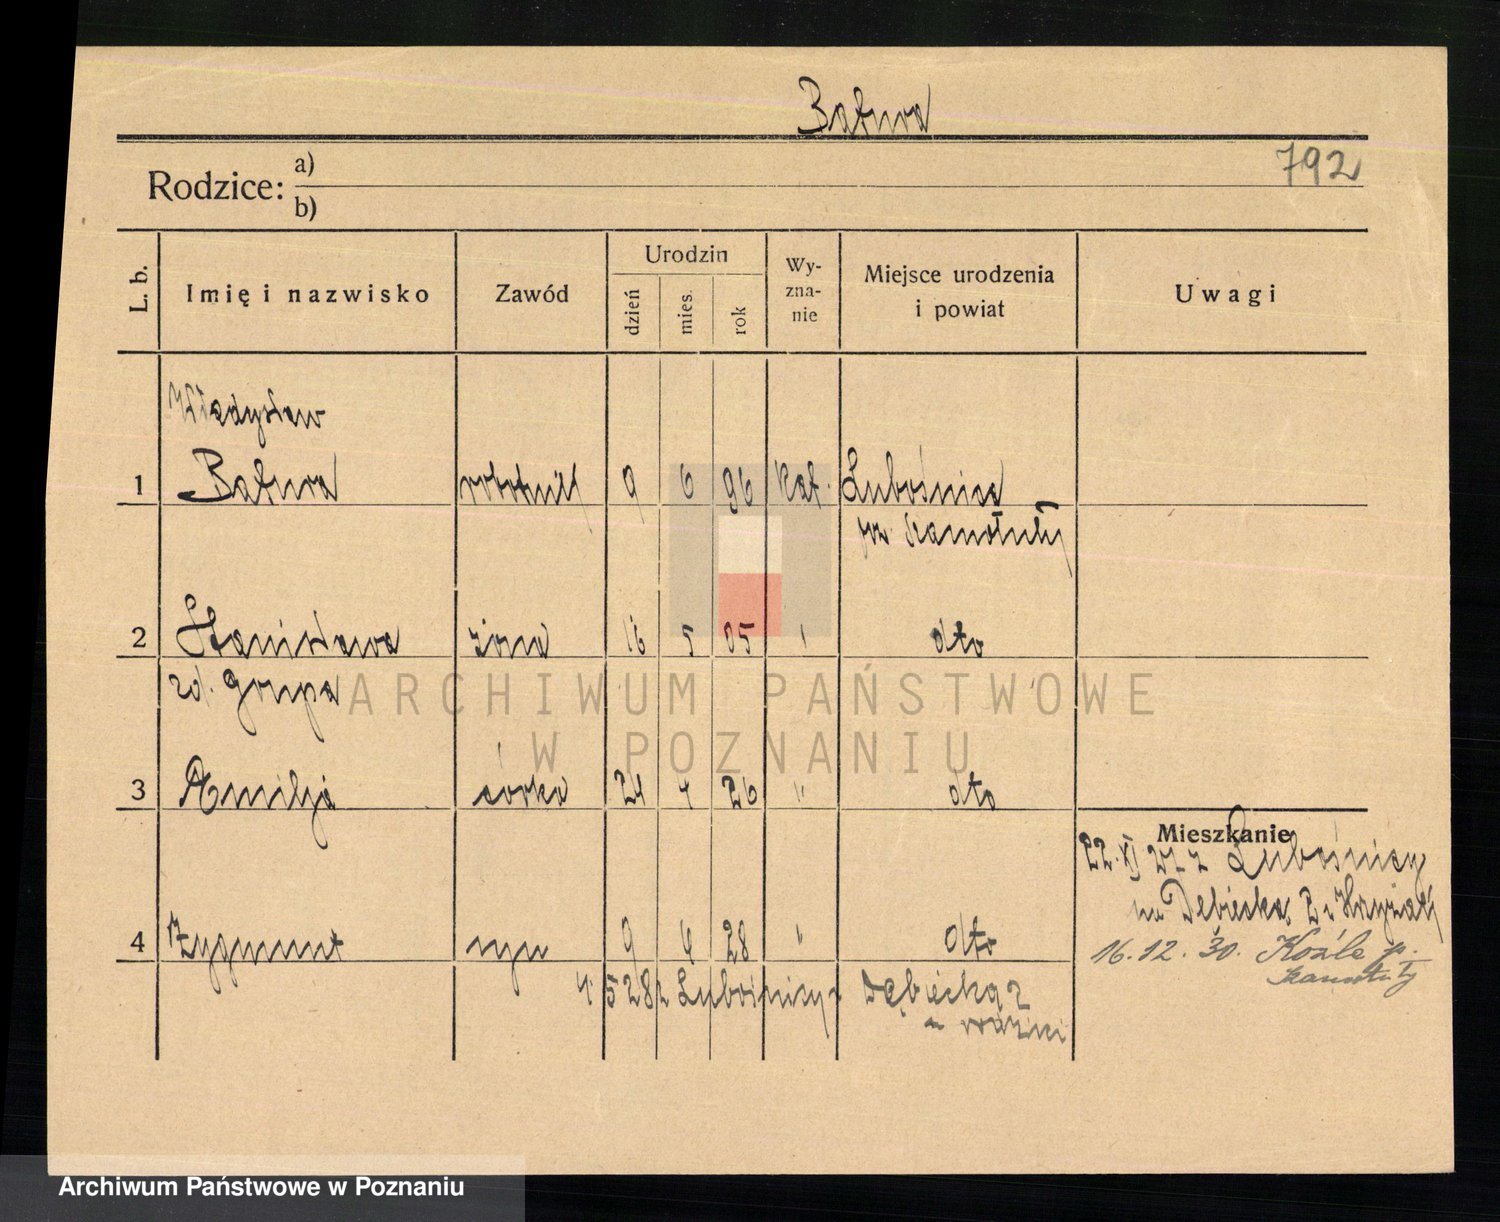 Batura
792
Rodzice: a)
b)
L. b.
Imię i nazwisko
Zawód
Urodzin
dzień
mies.
rok
Wy-
zna-
nie
Miejsce urodzenia
i powiat
Uwagi
Władysław
1 Batura robotnik 9 6 96 kat. Lubośnica
pow. Szamotuły
2 Stanisława żona 16 5 05 " dto
zd. Grupa
ARCHIWUM PAŃSTWOWE
W POZNANIU
3 Emilja córka 24 4 26 " dto
Mieszkanie
22. XI 27 z Lubośnicy
na Dębiecką 2
16. 12. 30. Koźle p.
Szamotuły
4 Zygmunt syn 9 4 28 " dto
4 5 28 z Lubośnicy Dębiecka 2
Archiwum Państwowe w Poznaniu